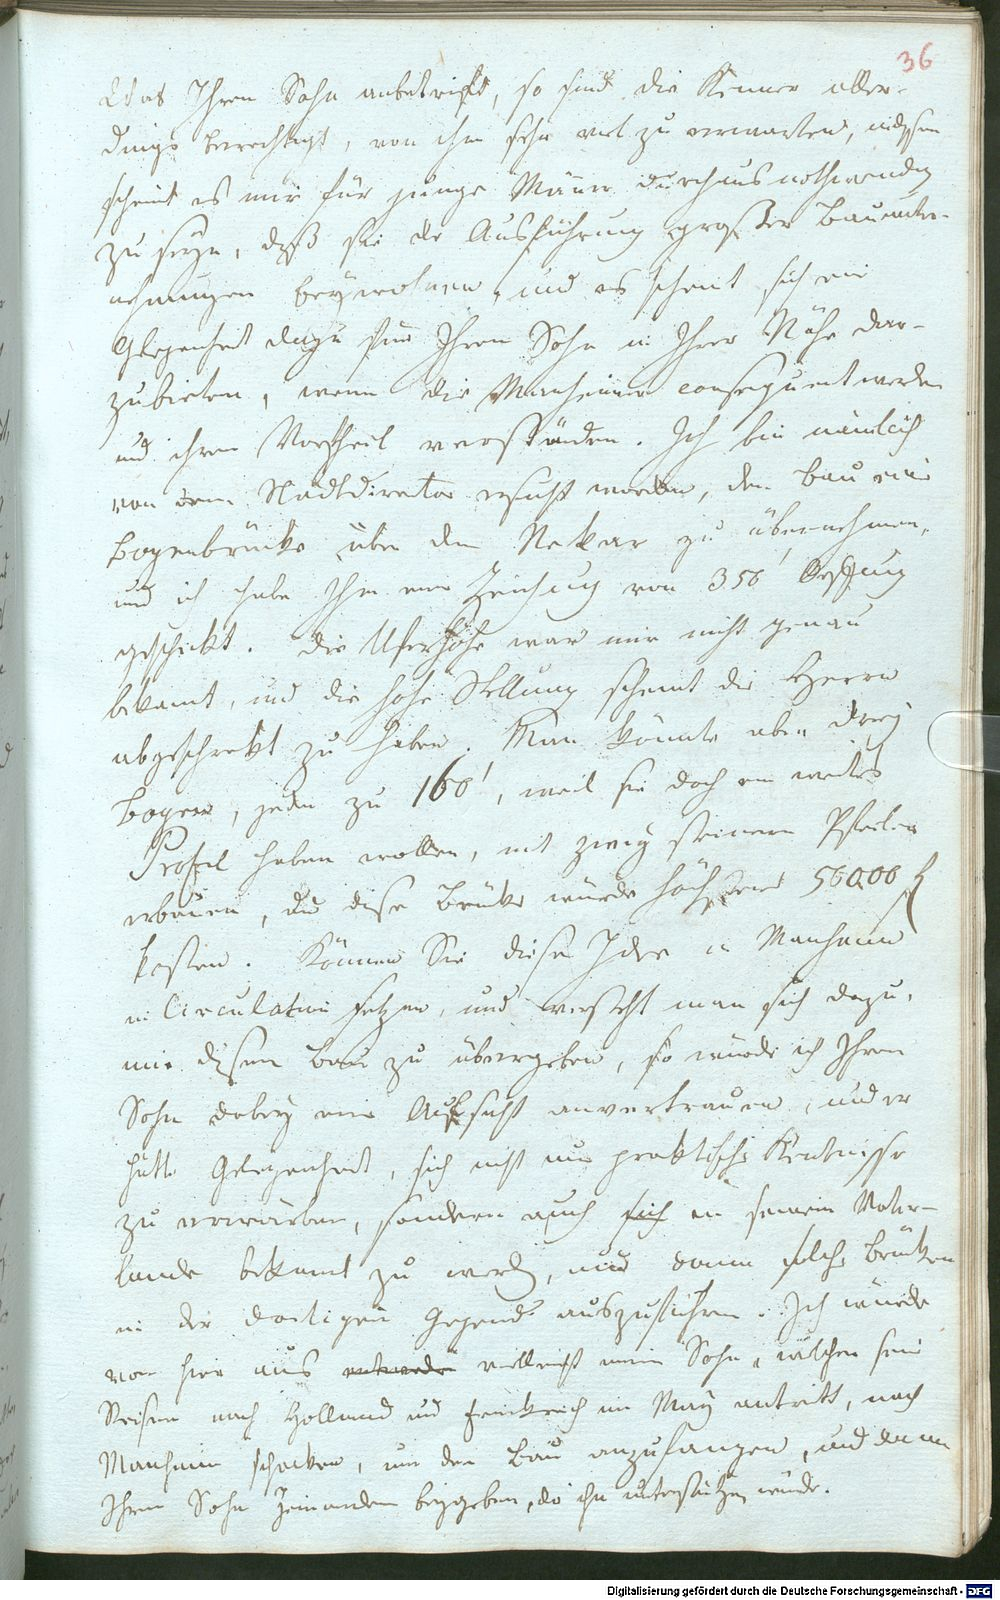 36
Was Ihren Sohn anbetrifft, so sind die Kenner aller-
dings berechtigt, von ihm sehr viel zu erwarten, indessen
scheint es mir für junge Männer durchaus nothwendig
zu seyn, daß sie der Ausführung großer Bauunter-
nehmungen beywohnen, und es scheint sich eine
Gelegenheit dazu für Ihren Sohn in Ihrer Nähe dar-
zubieten, wenn die Manheimer consequent werden
und ihren Vortheil verständen. Ich bin nämlich
von dem Stadtdirector ersucht worden, den Bau einer
Bogenbrücke über den Nekar zu übernehmen,
und ich habe Ihm eine Zeichnung von 350' Oeffnung
geschickt. Die Uferhöhe war mir nicht genau
bekannt, und die hohe Stellung scheint die Herrn
abgeschrekt zu haben. Man könnte aber drey
Bogen, jeden zu 160', weil sie doch ein weites
Profil haben wollen, mit zwey steinern Pfeilern
erbauen, und diese Brüke würde höchstens 56000 f
kosten. Können Sie diese Idee in Manheim
in Circulation setzen, und versteht man sich dazu,
mir diesen Bau zu übergeben, so würde ich Ihrem
Sohn dabey eine Aufsicht anvertrauen, und er
hätte Gelegenheit, sich nicht nur praktische Kentnisse
zu erwerben, sondern auch sich in seinem Vater-
lande bekannt zu werden, und dann solche Brüken
in der dortigen Gegend auszuführen. Ich würde
von hier aus entweder vielleicht mein Sohn, welcher seine
Reisen nach Holland und Frankreich im May antritt, nach
Manheim schicken, um den Bau anzufangen, und dann
Ihrem Sohn Jemanden beygeben, der ihn unterstützen würde.
Digitalisierung gefördert durch die Deutsche Forschungsgemeinschaft - DFG